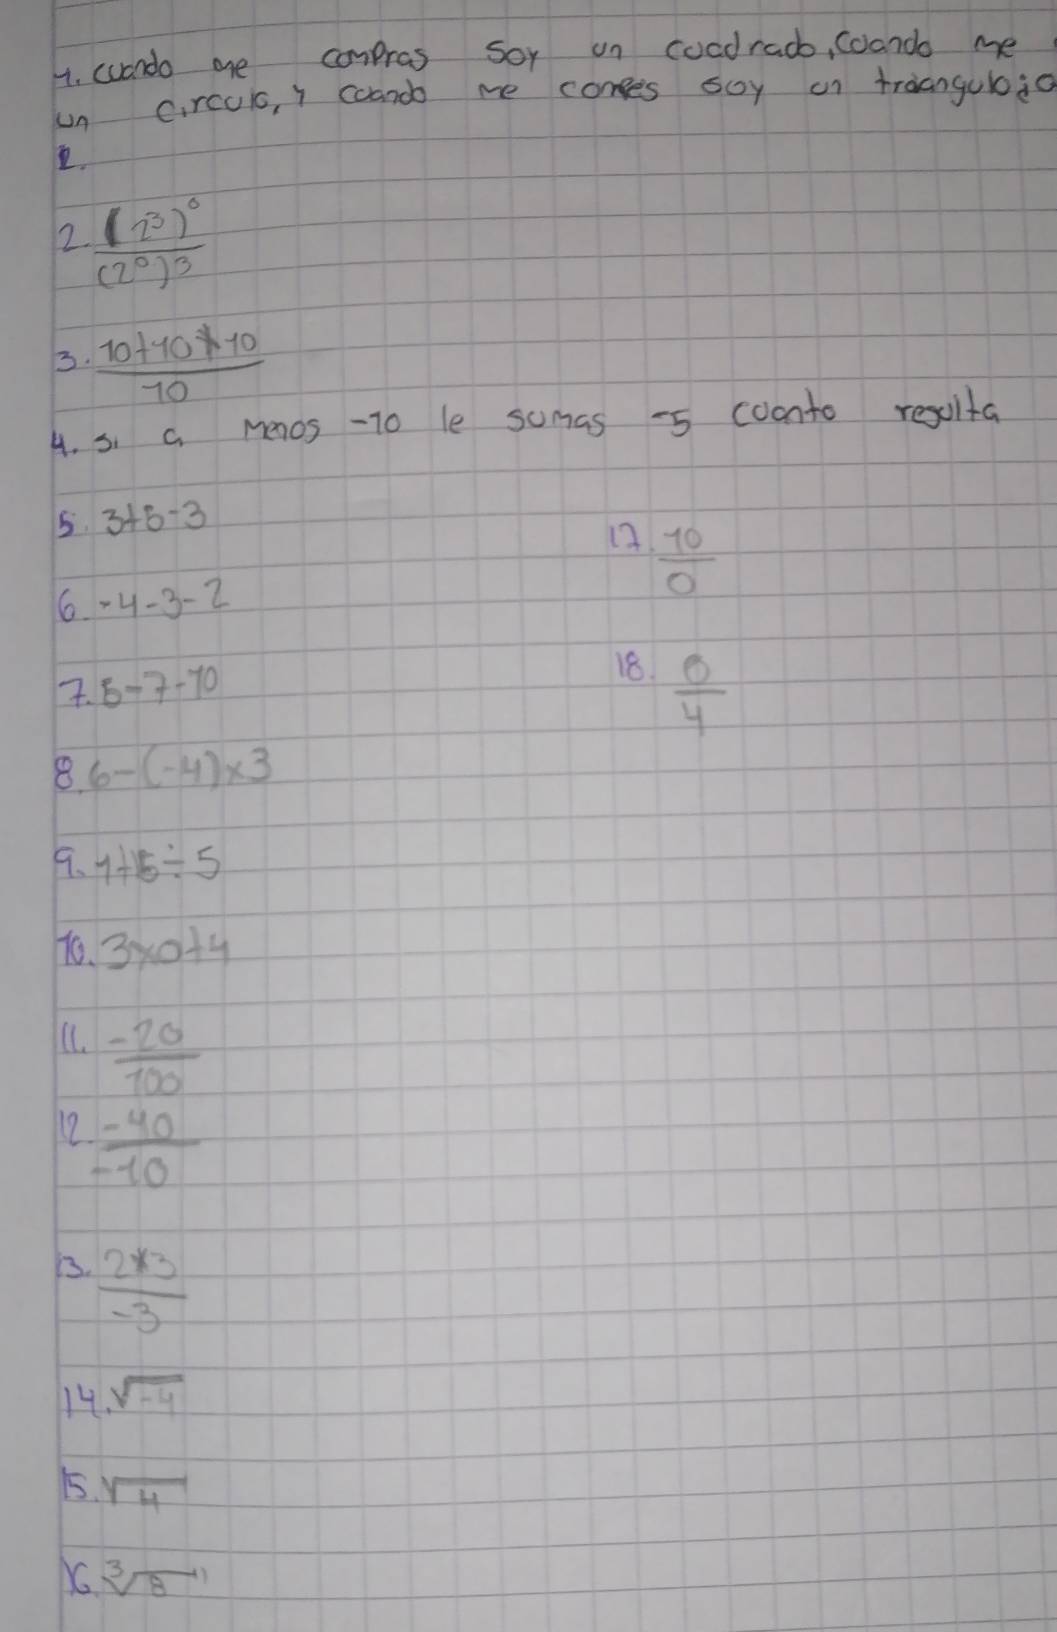 1. cuando me compras soy un cuadrado, cuando me
un circulo, y cuando me comes soy un triangulo ¿q
2.
2. (2³)⁰
(2⁰)³
3. 10+10*10
10
4. si a menos -10 le sumas -5 cuanto resulta
5. 3+5-3
6. -4-3-2
7. 5-7-10
8. 6-(-4)×3
9. 1+15÷5
10. 3×0+4
11. -20
100
12. -40
-10
13. 2*3
-3
14. √-4
15. √4
16. ³√8
17. 10
0
18. 0
4